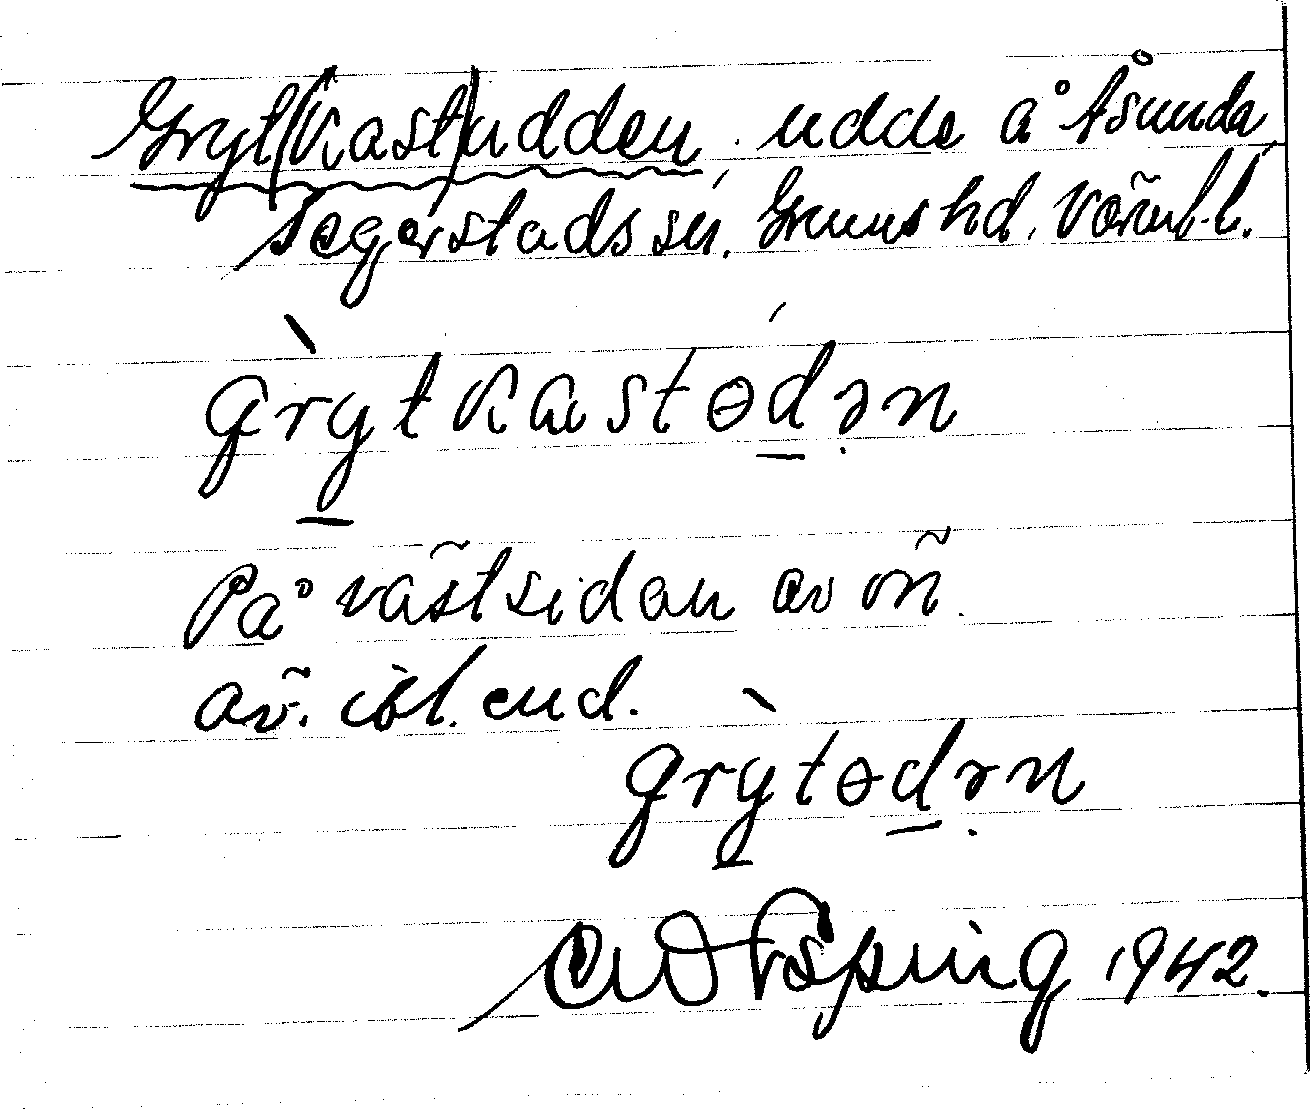 Gryt(kast)udden, udde å Åsunda,
Segerstads sn, Grums hd, Värml. l.
grytkastɵdən
På västsidan av ön.
äv. ibl. end.
grytɵdən
1942.